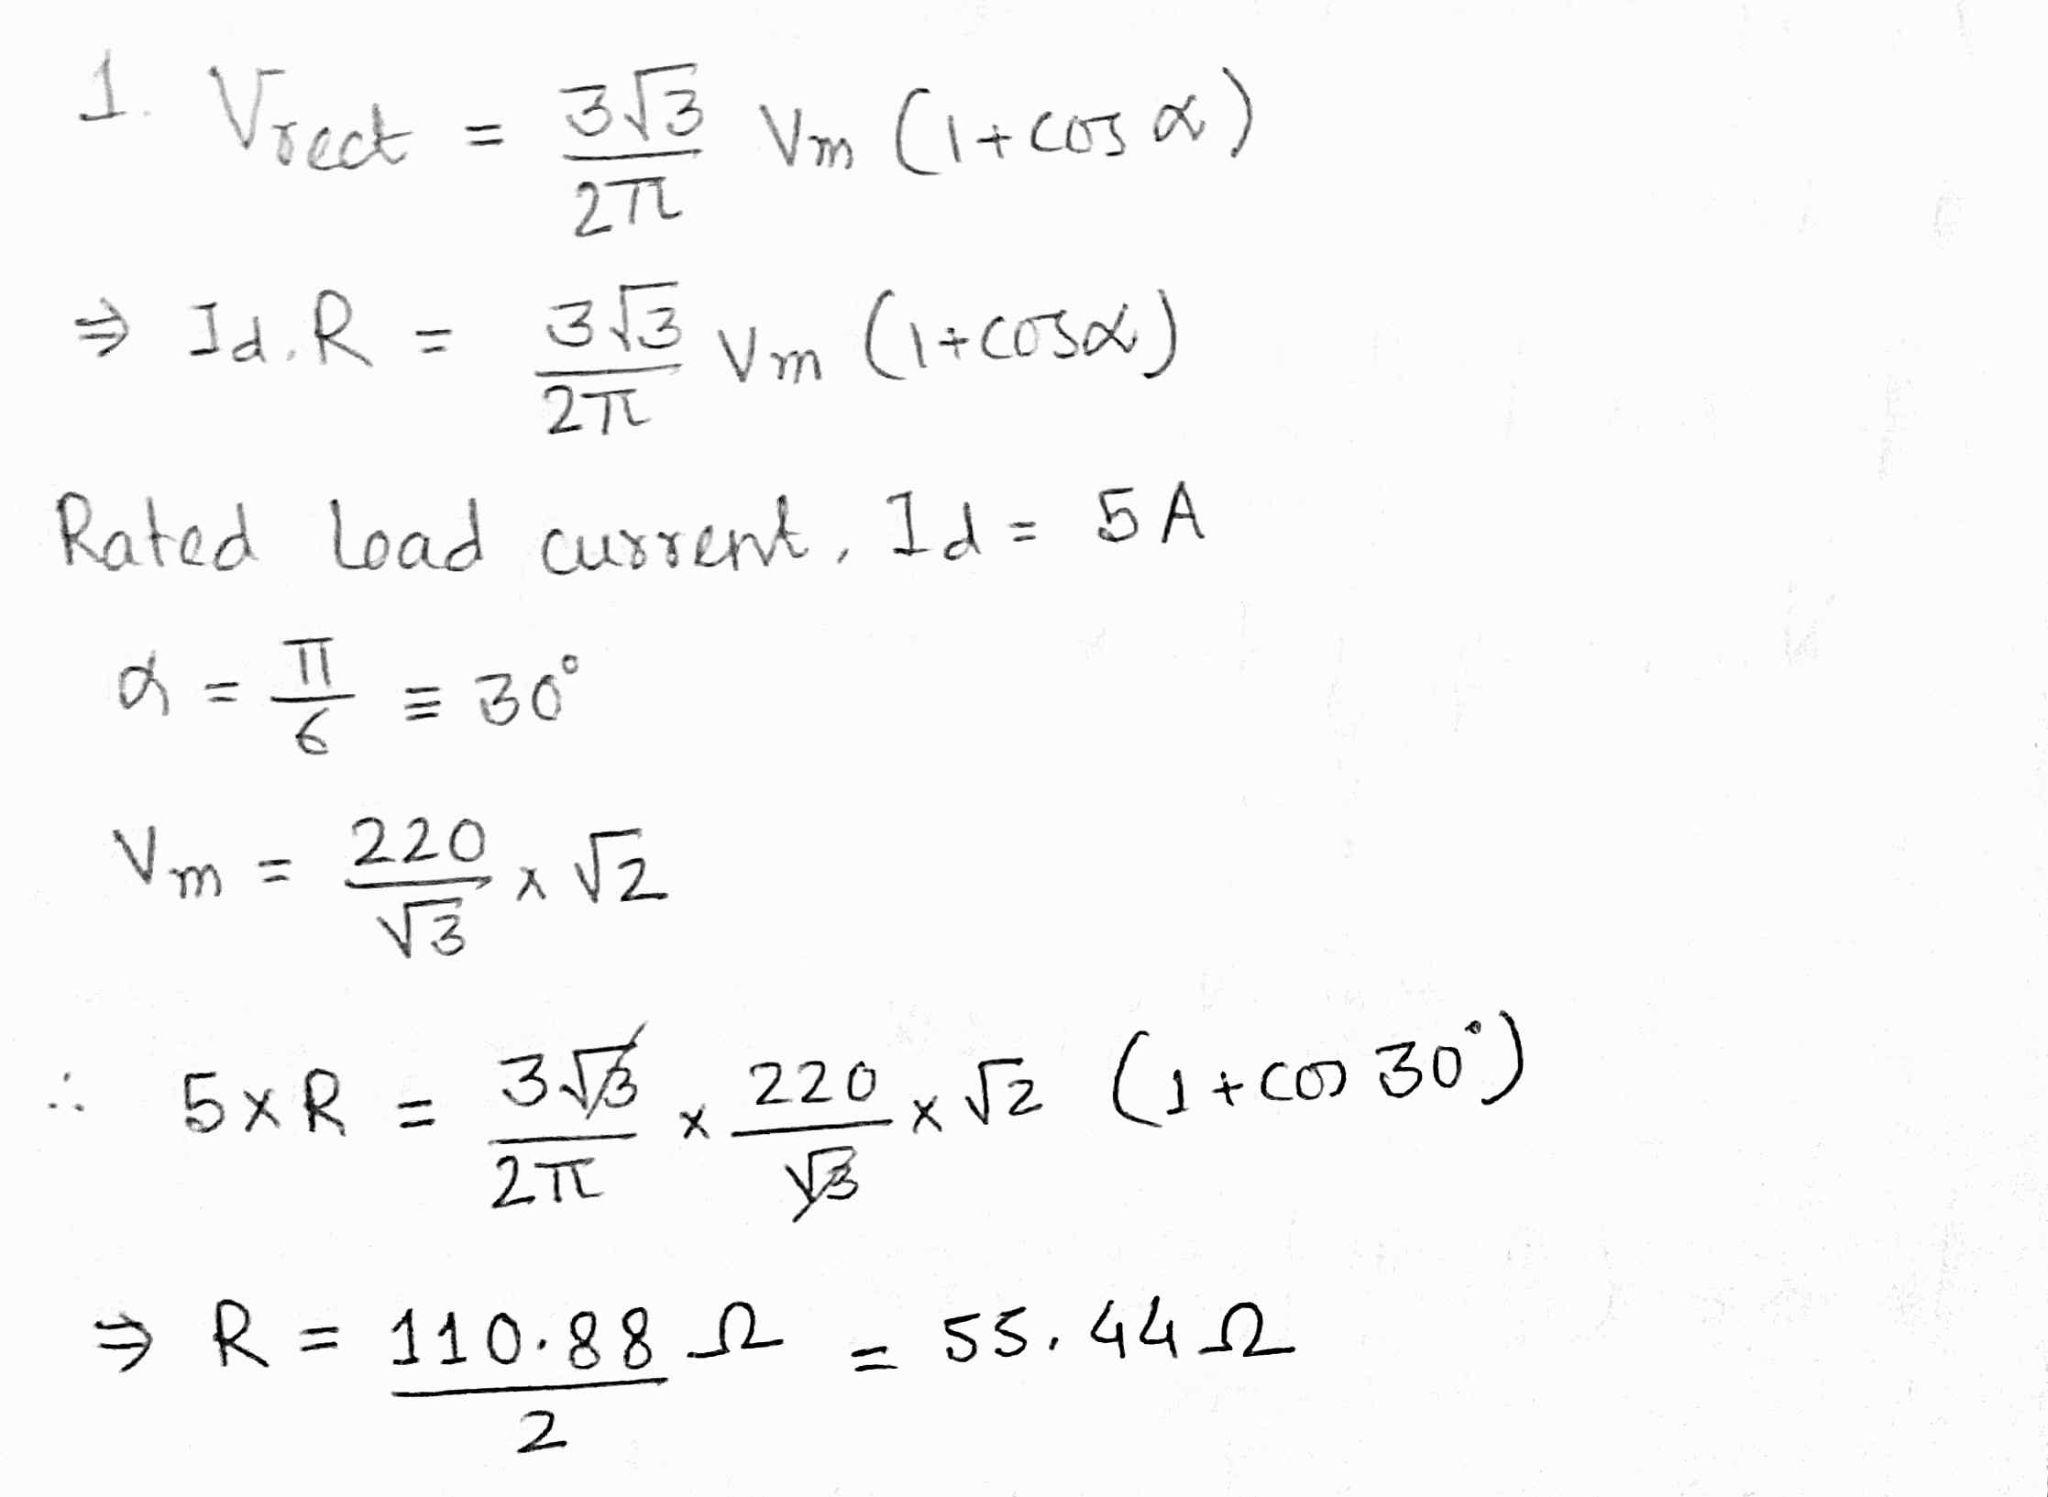 1. Vrect = 3√3/2π Vm (1+cos α)
⇒ Id.R = 3√3/2π Vm (1+cosα)
Rated load current, Id = 5A
α = π/6 ≡ 30°
Vm = 220/√3 x √2
∴ 5xR = 3√3/2π x 220/√3 x √2 (1+cos 30°)
⇒ R = 110.88/2 Ω = 55.44Ω